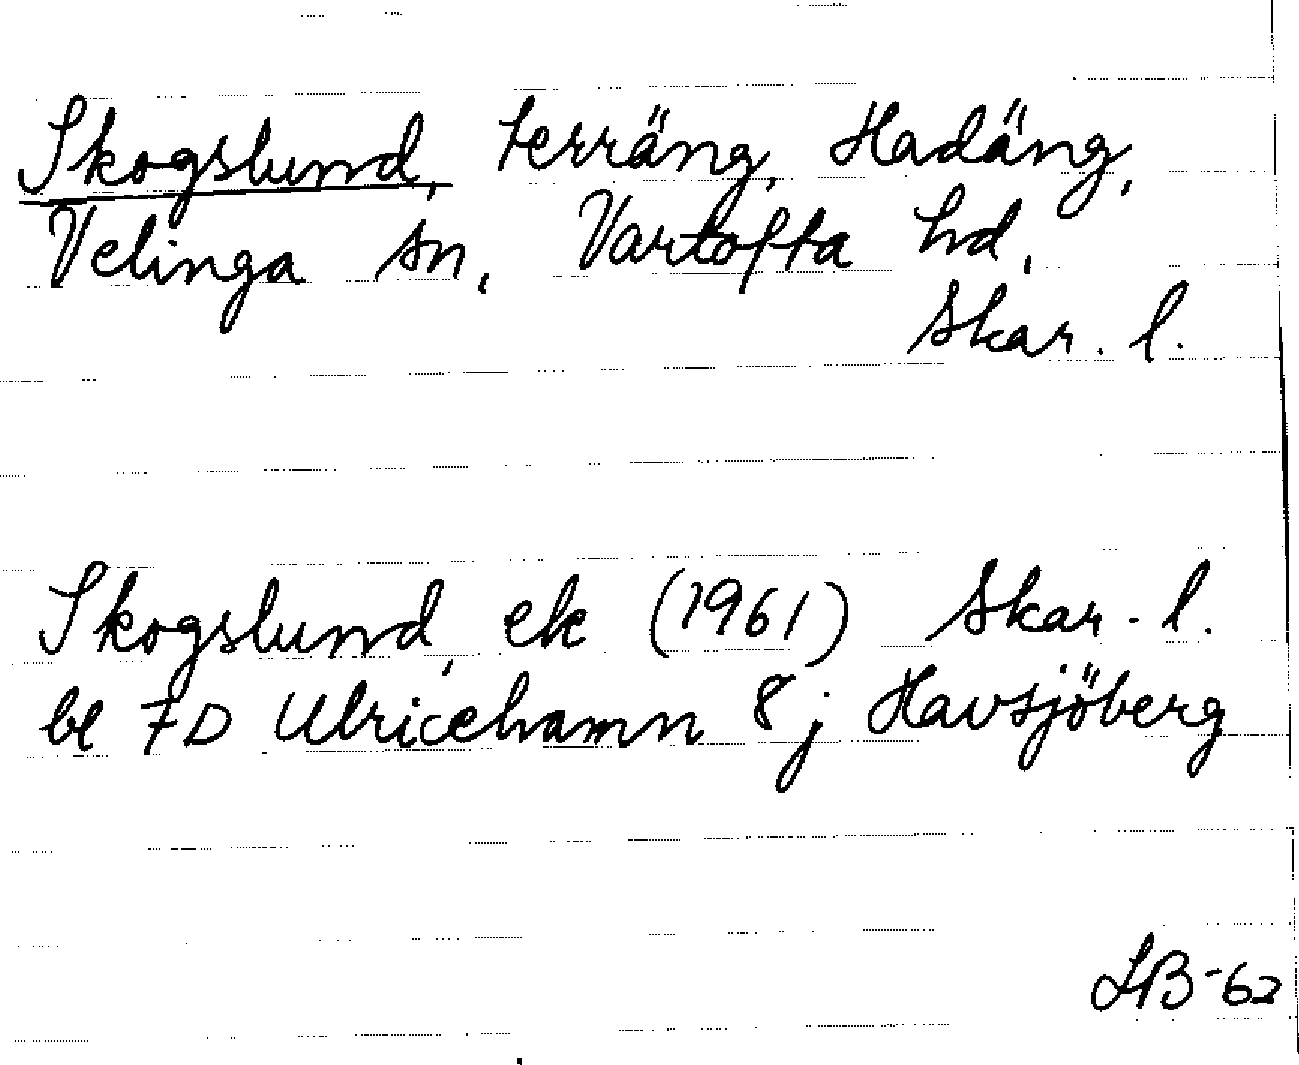 Skogslund, terräng, Hadäng,
Velinga sn, Vartofta hd,
Skar. l.
Skogslund, ek (1961) Skar. l.
bl 7D Ulricehamn 8j Havsjöberg
LB-62